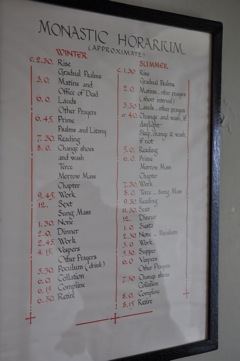 MONASTIC HORARIUM
(APPROXIMATE)
WINTER
c. 2.30. Rise
Gradual Psalms
3.0. Matins and
Office of Dead
6.0. Lauds
Other Prayers
6.45. Prime
Psalms and Litany
7.30. Reading
8.0. Change shoes
and wash
Terce
Morrow Mass
Chapter
9.45. Work
12. Sext
Sung Mass
1.30. None
2.0. Dinner
2.45. Work
4.15. Vespers
Other Prayers
5.30. Poculum (drink)
6.0. Collation
6.15. Compline
6.30. Retire
SUMMER
c. 1.30. Rise
Gradual Psalms
2.0. Matins, other prayers
(short interval)
3.30. Lauds, other prayers
c. 4.0. Change and wash, if
daylight.
Sleep, change & wash
if not
5.0. Reading
6.0. Prime
Morrow Mass
Chapter
7.30. Work
8.0. Terce, Sung Mass
9.30. Reading
11.30. Sext
12. Dinner
1.0. Siesta
2.30. None, Poculum
3.0. Work
5.30. Supper
6.0. Vespers
Other Prayers
7.30. Change shoes
Collation
8.0. Compline
8.15. Retire